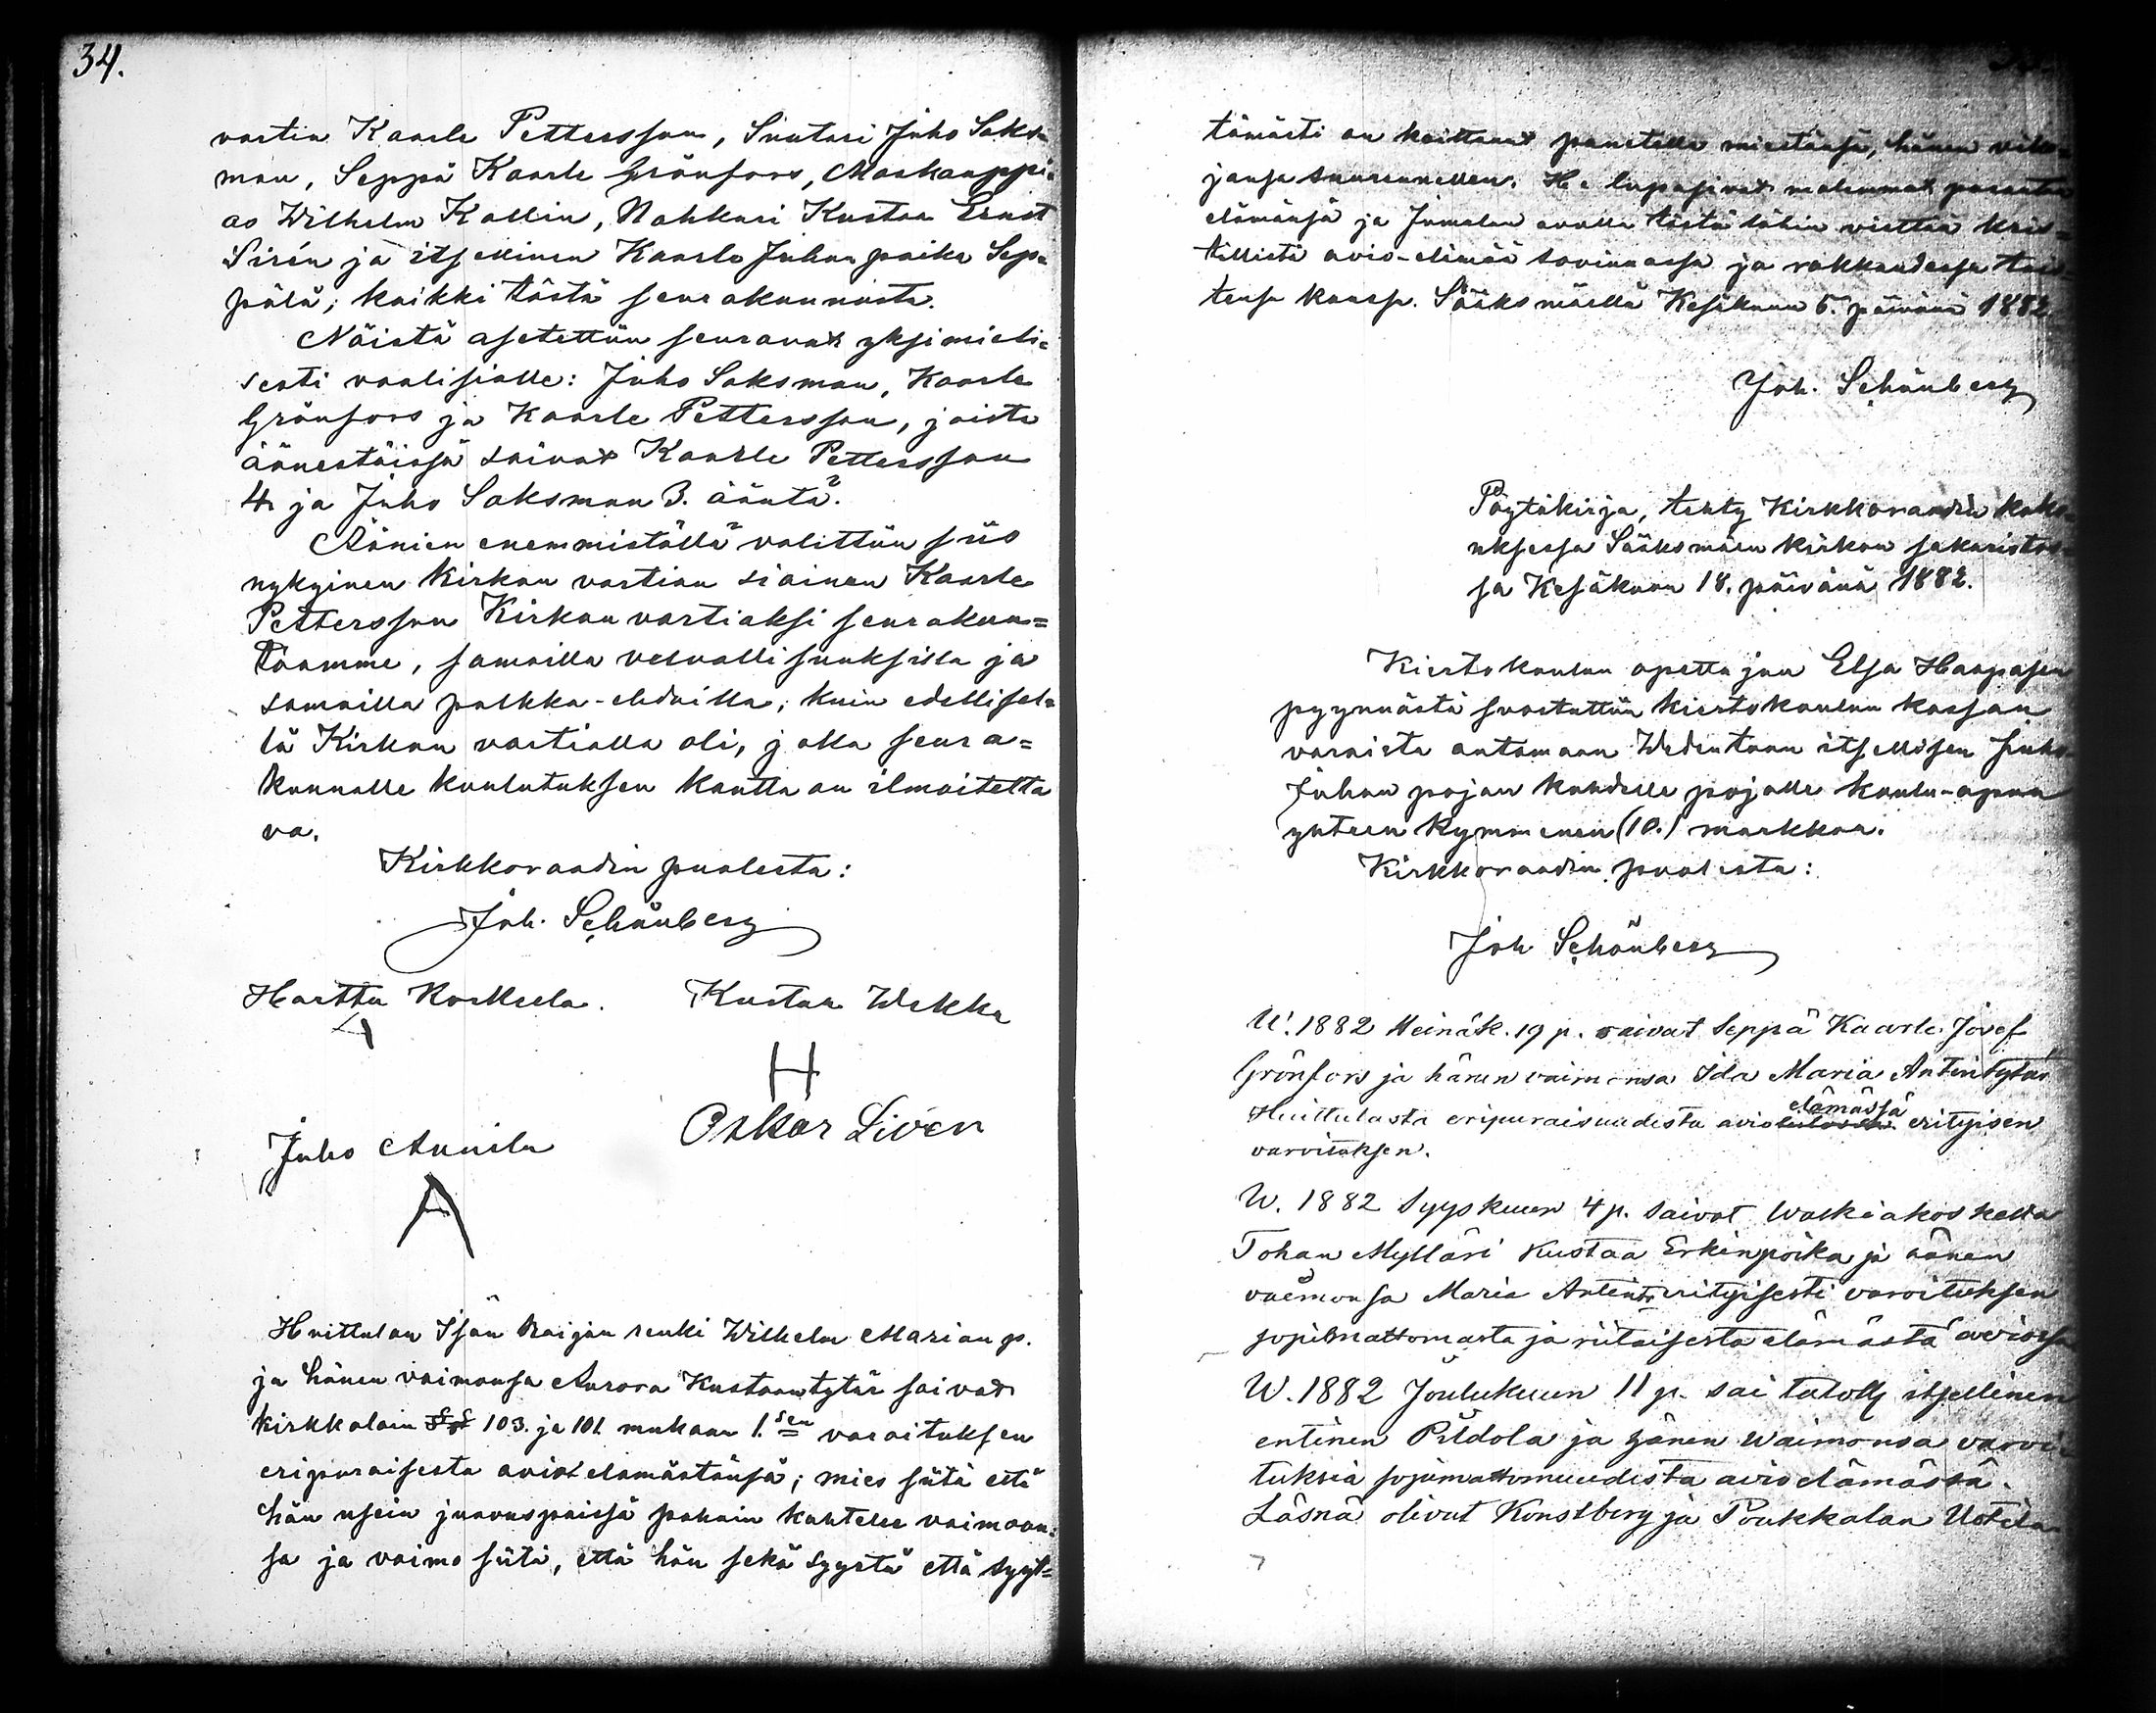 34.
vartia Kaarle Pettersson, Suutari Juho Saks=
man, Seppä Kaarle Grönfors, Maakauppi=
as Wilhelm Kallin, Nahkuri Kustaa Ernst
Sirén ja itsellinen Kaarlo Juhanpoika Sep=
pälä; kaikki tästä seurakunnasta.
Näistä asetettiin seuravat yksimieli=
sesti vaalisialle: Juho Saksman, Kaarle
Grönfors ja Kaarle Pettersson, joista
äänestäissä saivat Kaarle Pettersson
4 ja Juho Saksman 3. ääntä.
Äänien enemmistöllä valittiin siis
nykyinen kirkon vartian siainen Kaarle
Pettersson Kirkon vartiaksi seurakun=
taamme, samoilla velvallisuuksilla ja
samoilla palkka-eduilla, kuin edellisel=
lä Kirkon vartialla oli, joka seura=
kunnalle kuulutuksen kautta on ilmoitetta
va.
Kirkkoraadin puolesta:
Joh. Schönberg
Harttu Koskela. Kustaa Wekka
H
Juho Annila Oskar Liven
A
Huittulan Isän Raijan renki Wilhelm Marian p.
ja hänen vaimonsa Aurora Kustaantytär saivat
kirkkolain §§ 103. ja 101 mukaan 1.sen varoituksen
eripuraisesta aviot elämästänsä; mies siitä että
hän usein juovuspäissä pahoin kohtelee vaimoan=
sa ja vaimo siitä, että hän sekä syystä että syyt=
tömästi on koittanut panetella miestänsä, hänen viho=
jansa suurennellen. He lupasivat molemmat parantaa
elämänsä ja Jumalan avulla tästä lähin viettää kris=
tillistä avio-elämää sovinnossa ja rakkaudessa tois=
tensa kanssa. Sääksmäellä Kesäkuun 5. päivänä 1882
Joh. Schönberg
Pöytäkirja, tehty Kirkkoraadin koko=
uksessa Sääksmäen kirkon sakaristos=
sa Kesäkuun 18. päivänä 1882.
Kiertokoulun opettajan Elsa Haapasen
pyynnöstä suostuttiin kiertokoulun kassan
varoista antamaan Wedentaan itsellisen Juho
Juhan pojan kahdelle pojalle koulu-apua
yhteen kymmenen (10.) markkaa.
Kirkkoraadin puolesta:
Joh Schönberg
W. 1882 Heinäk. 19 p. saivat Seppä Kaarle Josef
Grönfors ja hänen vaimonsa Ida Maria Antintytär
elämässä
Huittulasta eripuraisuudesta avio erityisen
varoituksen.
W. 1882 Syyskuun 4 p. saivat Walkiakoskella
Tohan Mylläri Kustaa Erkinpoika ja äänen
vaimonsa Maria Antint. erityisesti varoituksen
sopimattomasta ja riitaisesta elämästä aviossa
W. 1882 Joulukuun 11 p. sai itsellinen
entinen ja hänen Waimonsa varoi
tuksia sopimattomuudesta avioelämässä.
Läsnä olivat Konstberg ja Poukkalan Uotila